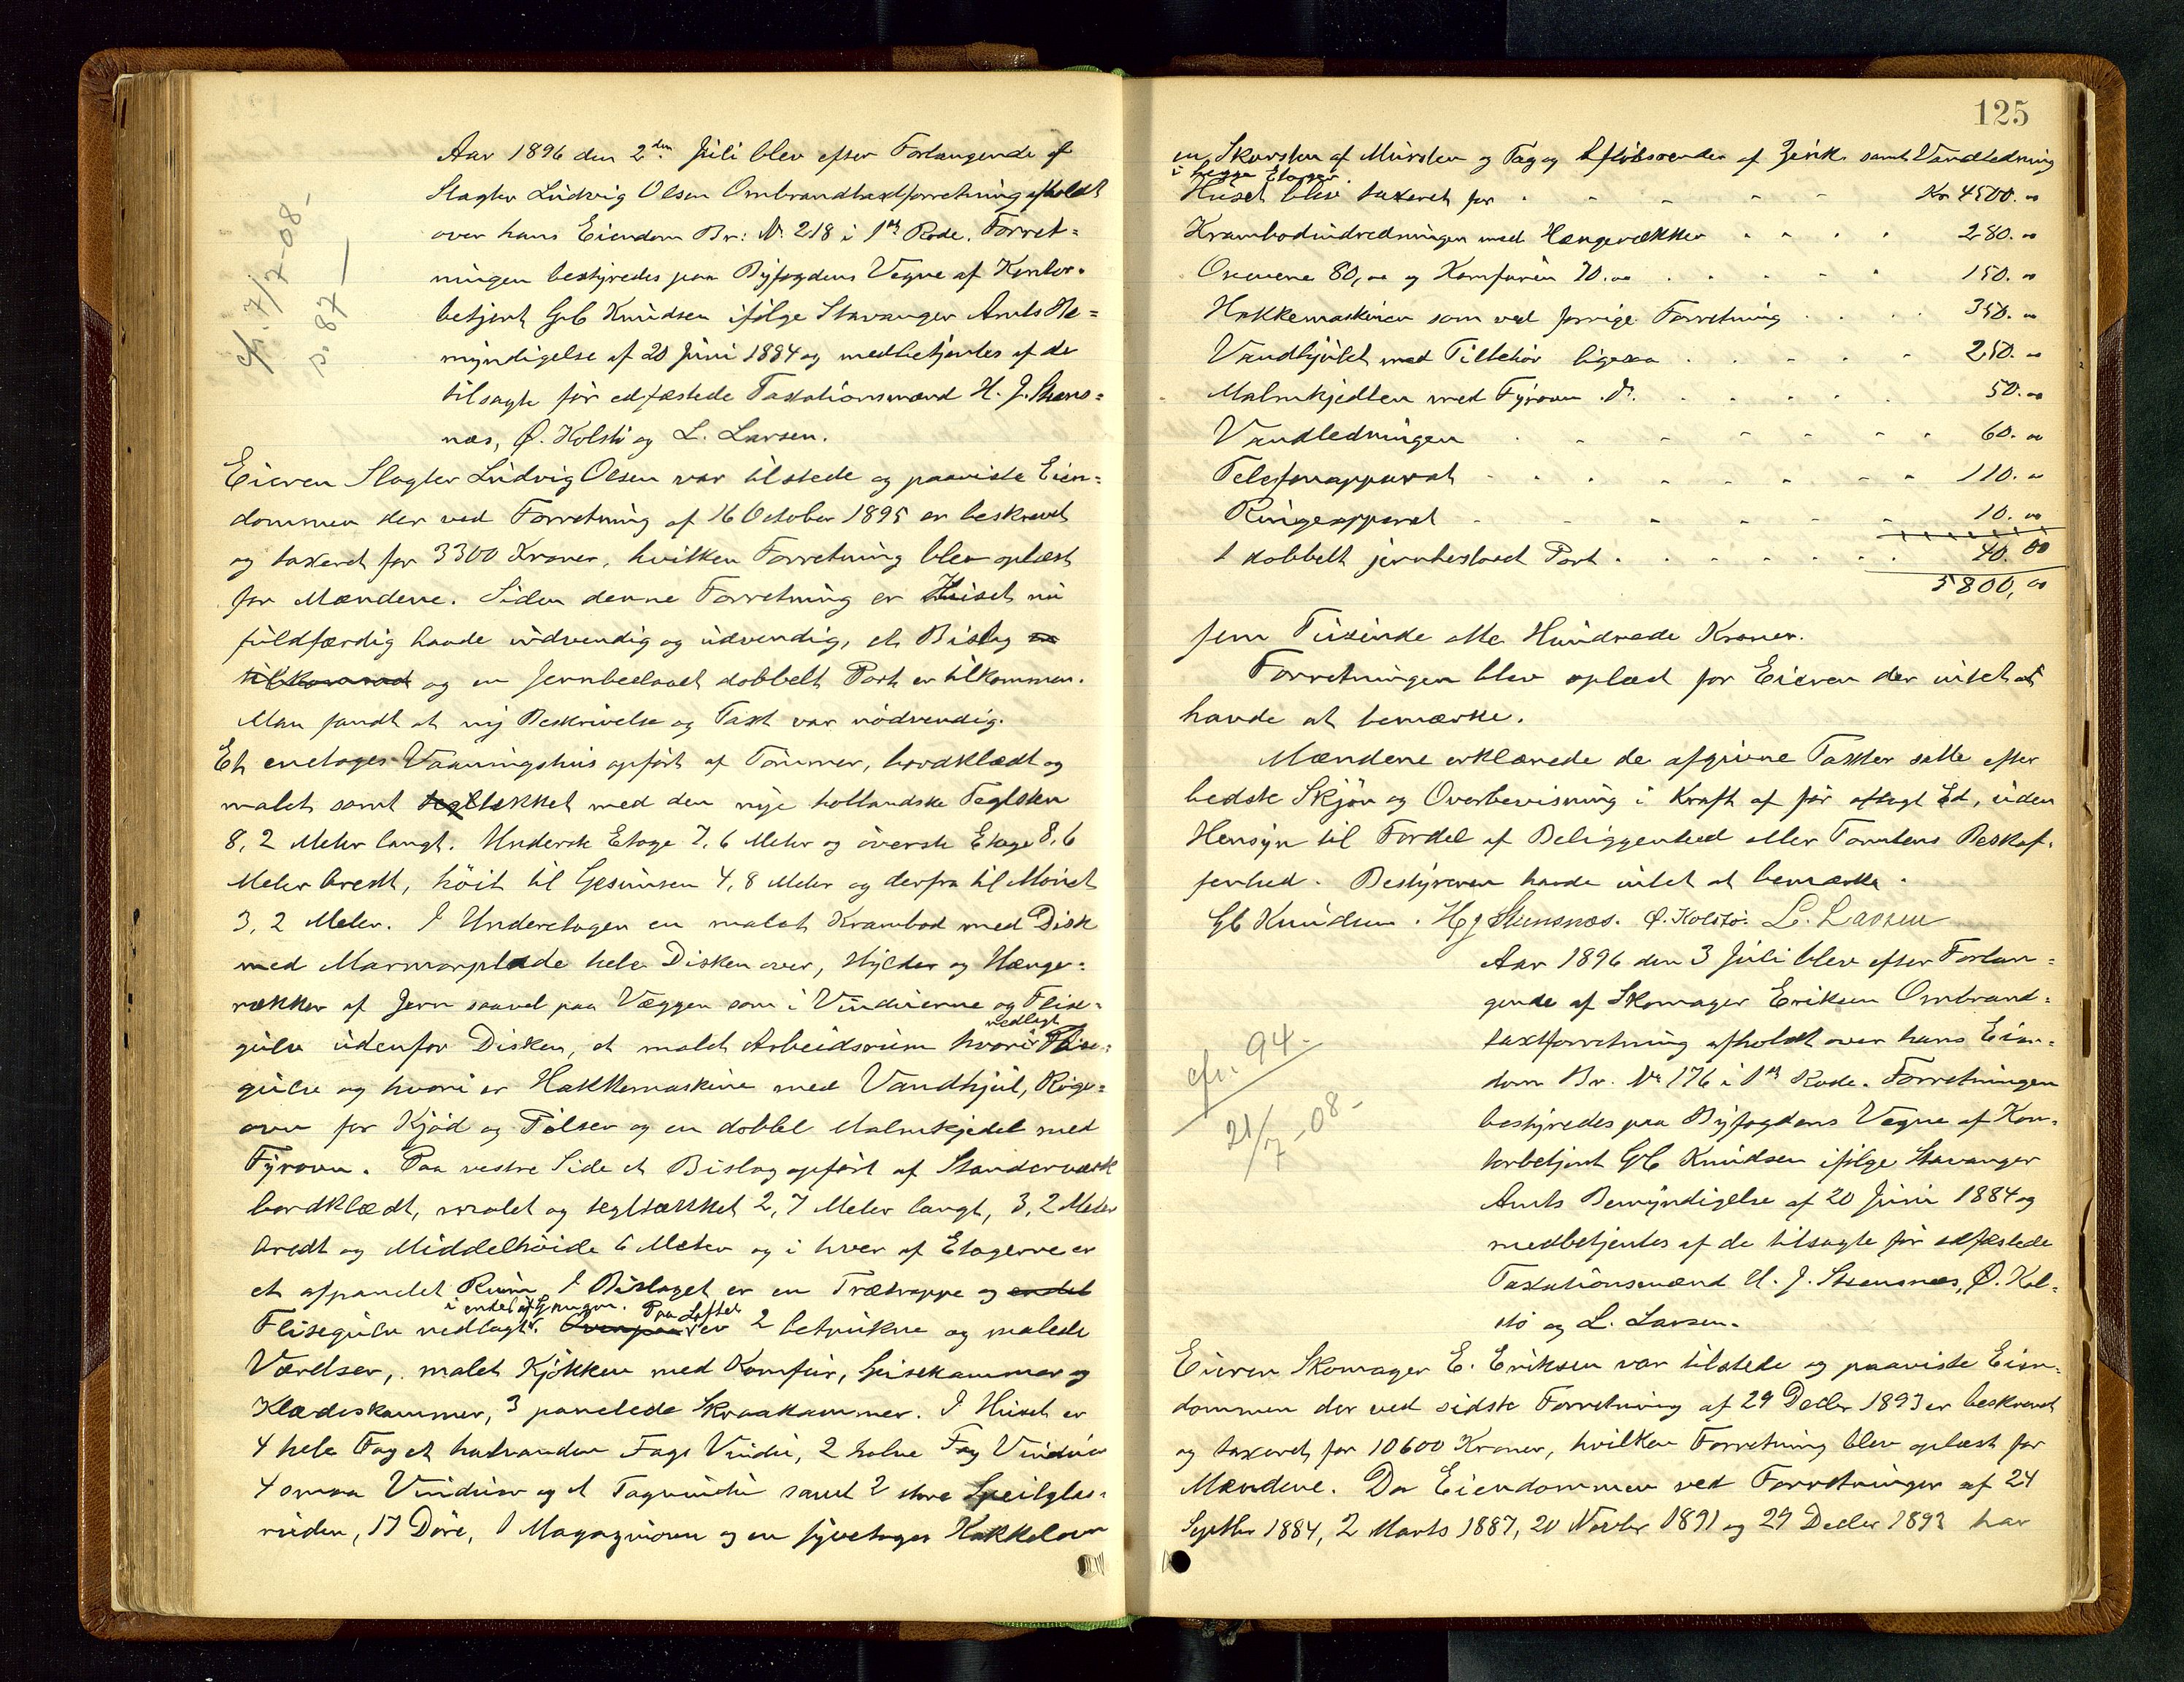 Aar 1896 den 2den Juli blev efter Forlangende af
Slagter Ludvig Olsen Ombrandtaxtforretning afholdt
over hans Eiendom Br: No 218 i 1ste Rode. Forret=
ningen bestyredes paa Byfogdens Vegne af Kontor-
betjent G C Knudsen ifölge Stavanger Amts Be=
myndigelse af 20 Juni 1884 og medbetjentes af de
tilsagte för edfæstede Taxtationsmænd H. J. Stens=
næs, Ø. Kolstö og L. Larsen.
cfr. 7/7-08-
p. 87
Eieren Slagter Ludvig Olsen var tilstede og paaviste Eien=
dommen der ved Forretning af 16 October 1895 er beskrevet
og taxeret for 3300 Kroner, hvilken Forretning blev oplæst
for Mændene. Siden denne Forretning er Huset nu
fuldfærdig baade indvendig og udvendig, et Bislag er
tilkommed og en Jernbeslaaet dobbelt Port er tilkommen.
Man fandt at ny Beskrivelse og Taxt var nödvendig.
Et enetages Vaaningshus opfört af Tömmer, bordklædt og
malet samt tegltækket med den nye hollandske Teglsten
8,2 Meter langt. Underste Etage 7,6 Meter og överste Etage 8,6
Meter bredt, höit til Gesimsen 4,8 Meter og derfra til Mönet
3,2 Meter. I Underetagen en malet Krambod med Disk
med Marmorplade hele Disken over, Hylder og Hænge-
rækker af Jern saavel paa Væggen som i Vinduerne og Flise-
gulv udenfor Disken, et malet Arbeidsrum hvori nedlagt Flise-
gulv og hvori er Hakkemaskine med Vandhjul, Röge-
ovn for Kjöd og Pölser og en dobbel Malmkjedel med
Fyrovn. Paa vestre Side et Bislag opfört af Standerværk
bordklædt, malet og tegltækket 2,7 Meter langt, 3,2 Meter
bredt og Middelhöide 6 Meter og i hver af Etagerne er
et afpanelet Rum. I Bislaget er en Trætrappe og endel
i endel af Gangen. Paa Loftet
Flisegulv nedlagt. er 2 betrukne og malede
Værelser, malet Kjökken med Komfur, Spisekammer og
Klædeskammer, 3 panelede Skraakammer. I Huset er
4 hele Fag et halvanden Fags Vindu, 2 halve Fag Vinduer
4 smaa Vinduer og et Tagvindu samt 2 store Speilglas-
ruder, 17 Döre, 1 Magazinovn og en fyretages Kakkelovn
125
en Skorsten af Mursten og Tag og Aflöbsrender af Zink samt Vandledning
i begge Etager.
Huset blev taxeret for Kr 4500.00
Krambodindredningen med Hængerækker 280.00
Ovnene 80,00 og Komfuren 70.00 150.00
Hakkemaskinen som ved forrige Forretning 350.00
Vandhjulet med Tilbehör ligesaa 250.00
Malmkjedlen med Fyrovn do. 50.00
Vandledningen 60.00
Telefonapparat 110.00
Ringeapparat 10.00
1 dobbelt jernbeslaaet Port 40.00
5800,00
fem Tusinde otte Hundrede Kroner.
Forretningen blev oplæst for Eieren der intet at
havde at bemærke.
Mændene erklærede de afgivne Taxter satte efter
bedste Skjön og Overbevisning i Kraft af för aflagt Ed, uden
Hensyn til Fordel af Beliggenhed eller Tomtens Beskaf-
fenhed. Bestyreren havde intet at bemærke.
G C Knudsen. H J Stensnæs. Ø. Kolstö. L. Larsen
Aar 1896 den 3 Juli blev efter Forlan=
gende af Skomager Eriksen Ombrand=
taxtforretning afholdt over hans Eien-
dom Br. No 176 i 1ste Rode. Forretningen
bestyredes paa Byfogdens Vegne af Kon-
torbetjent G C Knudsen ifölge Stavanger
Amts Bemyndigelse af 20 Juni 1884 og
medbetjentes af de tilsagte för edfæstede
Taxtationsmænd H. J. Stensnæs, Ø. Kol-
stö og L. Larsen.
cfr. 94-
21/7-08-
Eieren Skomager E. Eriksen var tilstede og paaviste Eien-
dommen der ved sidste Forretning af 29 Decbr 1893 er beskrevet
og taxeret for 10600 Kroner, hvilken Forretning blev oplæst for
Mændene. Da Eiendommen ved Forretninger af 24
Septbr 1884, 2 Marts 1887, 20 Novbr 1891 og 29 Decbr 1893 har